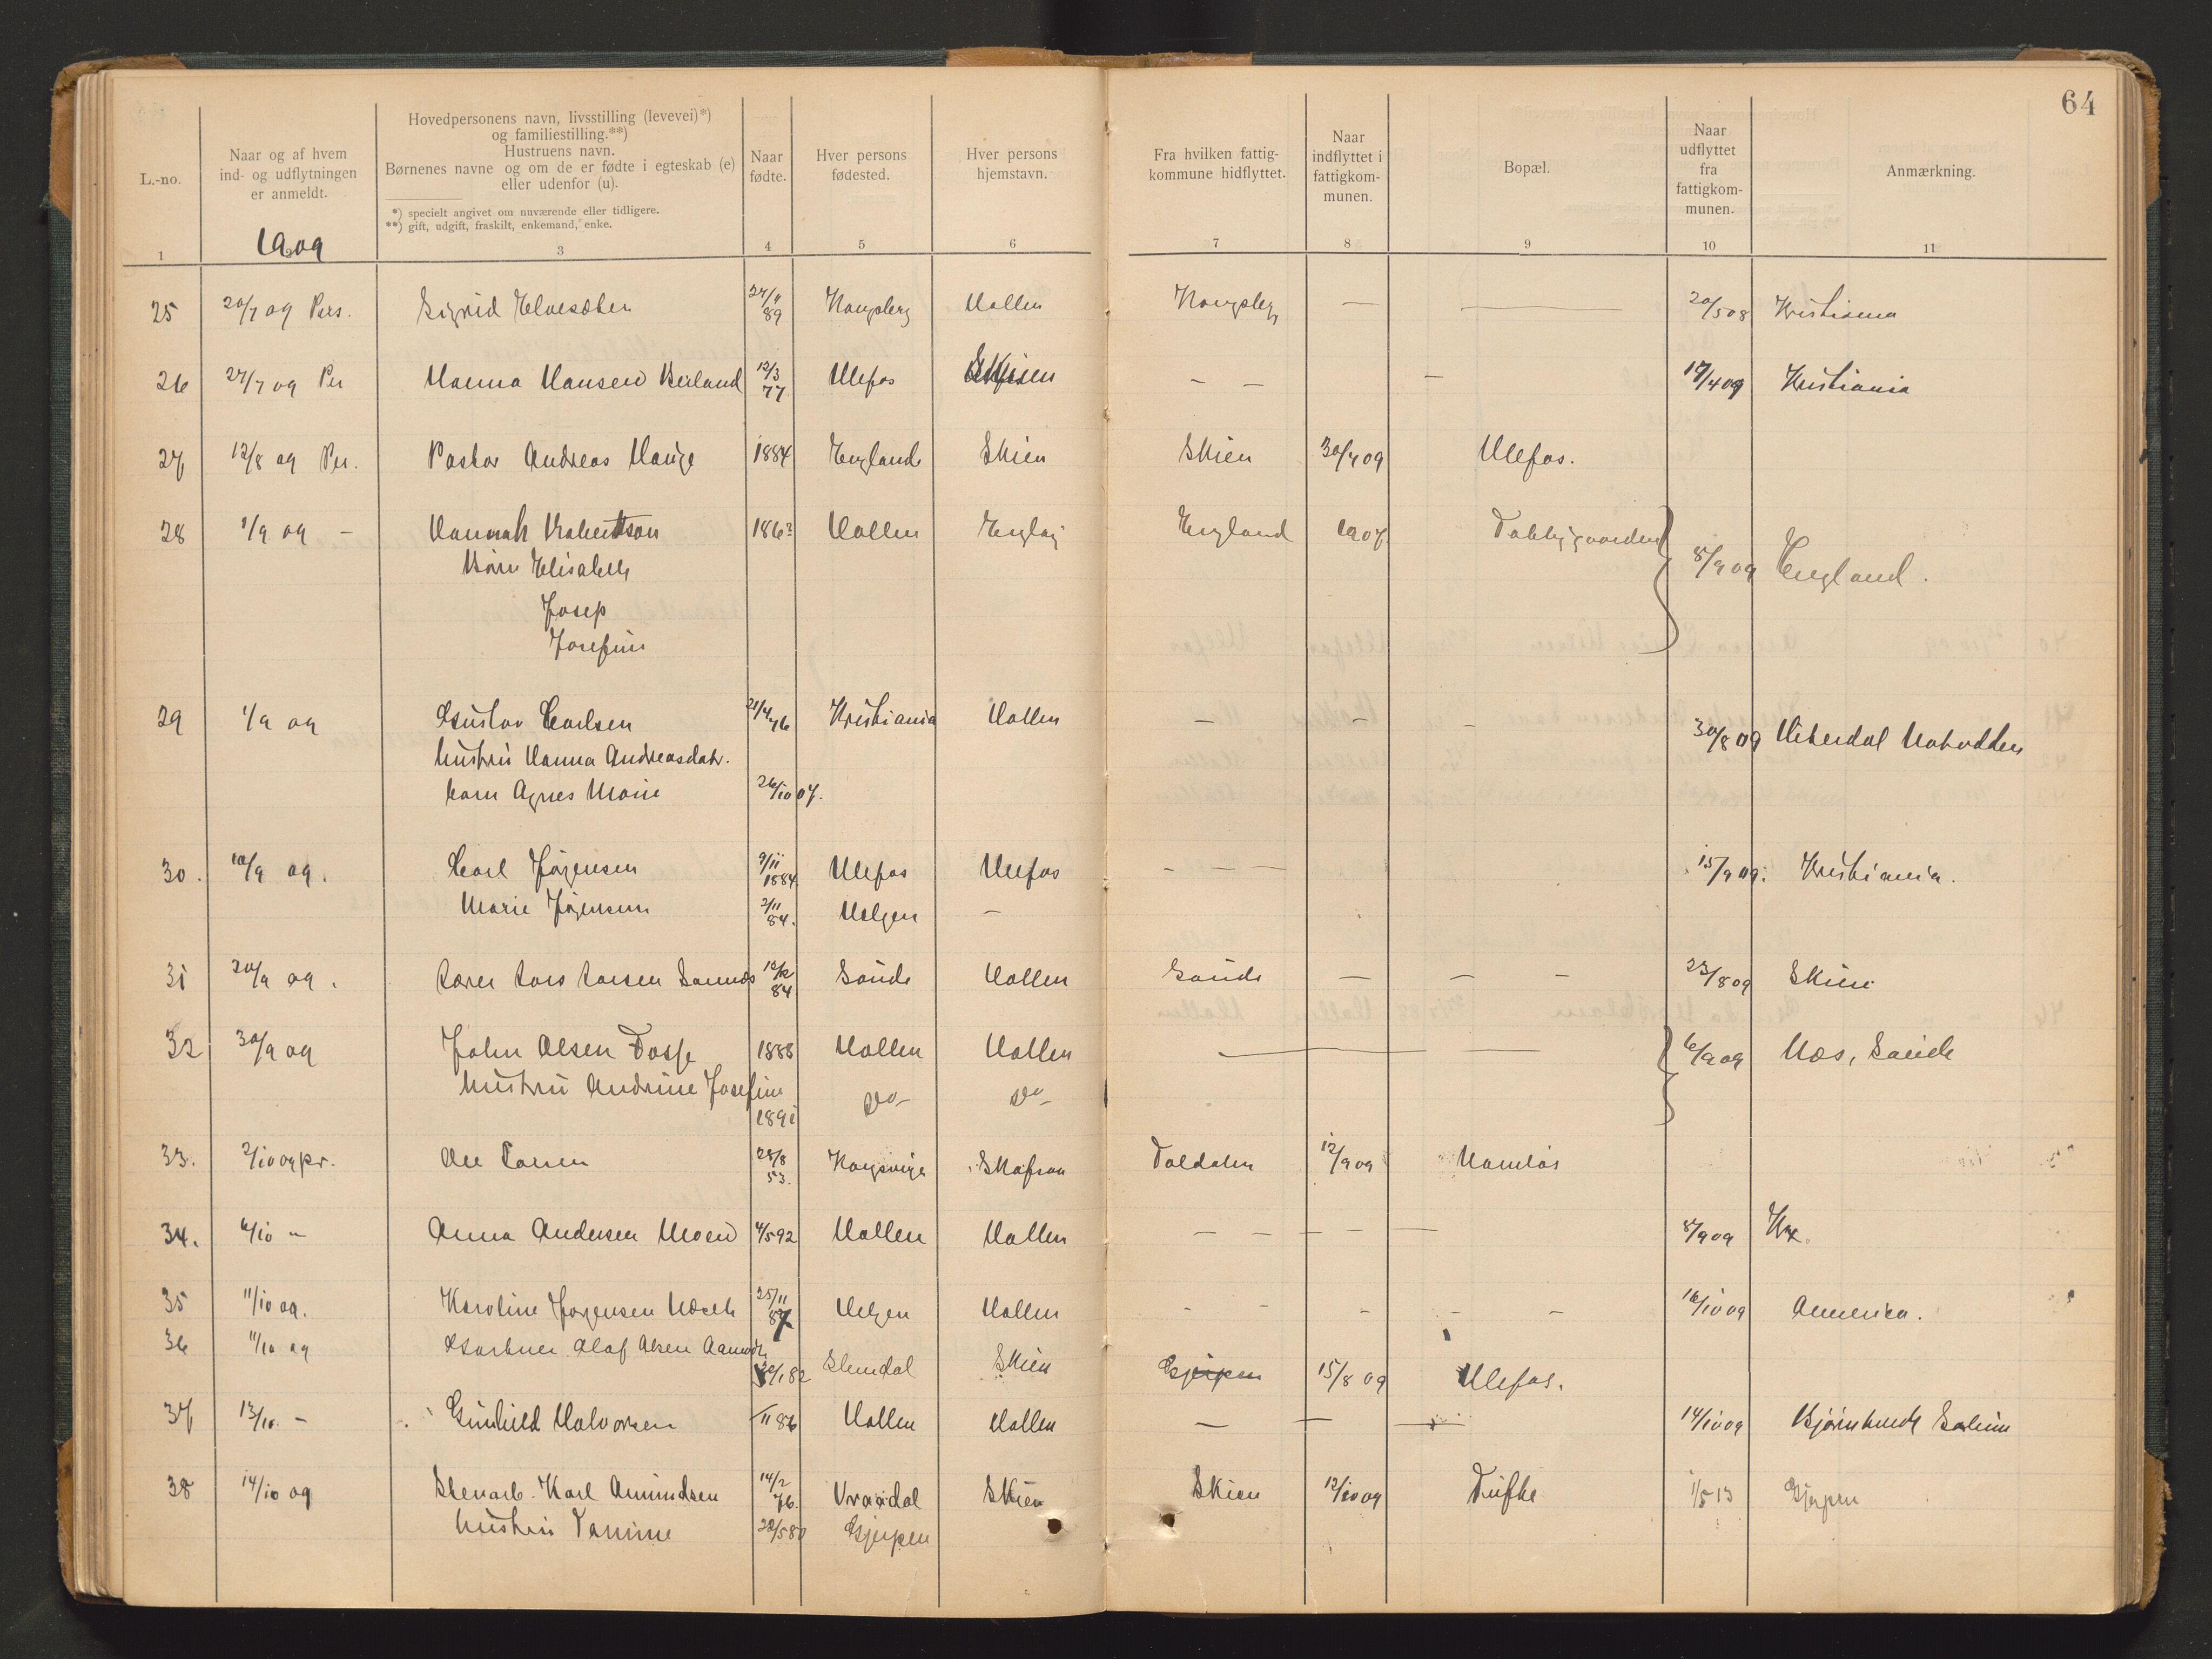 64
L.-no.
Naar og af hvem
ind- og udflytningen
er anmeldt.
Hovedpersonens navn, livsstilling (levevei)*)
og familiestilling.**)
Hustruens navn.
Børnenes navne og om de er fødte i egteskab (e)
eller udenfor (u).
*) specielt angivet om nuværende eller tidligere.
**) gift, udgift, fraskilt, enkemand, enke.
Naar
fødte.
Hver persons
fødested.
Hver persons
hjemstavn.
Fra hvilken fattig-
kommune hidflyttet.
Naar
indflyttet i
fattigkom-
munen.
Bopæl.
Naar
udflyttet
fra
fattigkom-
munen.
Anmærkning.
1909
1 3 4 5 6 7 8 9 10 11
25 20/7 09 Pers. Sigrid 24/11 89 Kongsberg Hollen Kongsberg — — 20/5 08 Kristiania
26 27/7 09 Per Hanna Hansen Berland 12/3 77 Ulefos Skien — — — 17/4 09 Kristiania
27 12/8 09 Per. Pastor Andreas Hauge 1884 England Skien Skien 30/7 09 Ulefos.
28 1/9 09 — Hannah Robertson 1863 Hollen England 1907 8/9 09 England.
Børn Elisabeth
Josep
Josefine
29 1/9 09 Gustav Carlsen 21/4 76 Kristiania Hollen — — — 30/8 09 Hiterdal Notodden
hustru Hanna Andreasdatr.
barn Agnes Marie 26/10 07.
30. 10/9 09. Carl Jørgensen 9/11 1884 Ulefos Ulefos — — — 15/9 09. Kristiania.
Marie Jørgensen 2/11 84. Helgen —
31 20/9 09. Lars Larsen 84 Saude Hollen Saude — — — 23/8 09 Skien
32 30/9 09 John Olsen 1888 Hollen Hollen — 6/9 09 Næs, Saude
hustru Andrine Josefine
1891 do— do—
33. 2/10 09 pr. Ole 28/8 53. 12/9 09
34. 6/10 — Anna Andersen Moen 4/5 92 Hollen Hollen — — — — 8/9 09 Kra.
35 11/10 09. Karoline Jørgensen 25/11 87 Helgen Hollen — — — — — 16/10 09 Amerika.
36 11/10 09 Olaf Olsen
20/1 82 Slemdal Skien Gjerpen 15/8 09 Ulefos.
37 13/10. — Gunhild Halvorsen /11 86 Hollen Hollen — — — 14/10 09
38 14/10 09 Stenarb. Karl Amundsen 14/2 76. Vraadal Skien Skien 12/10 09 Tufte 1/5 13 Gjerpen
hustru 28/5 80 Gjerpen